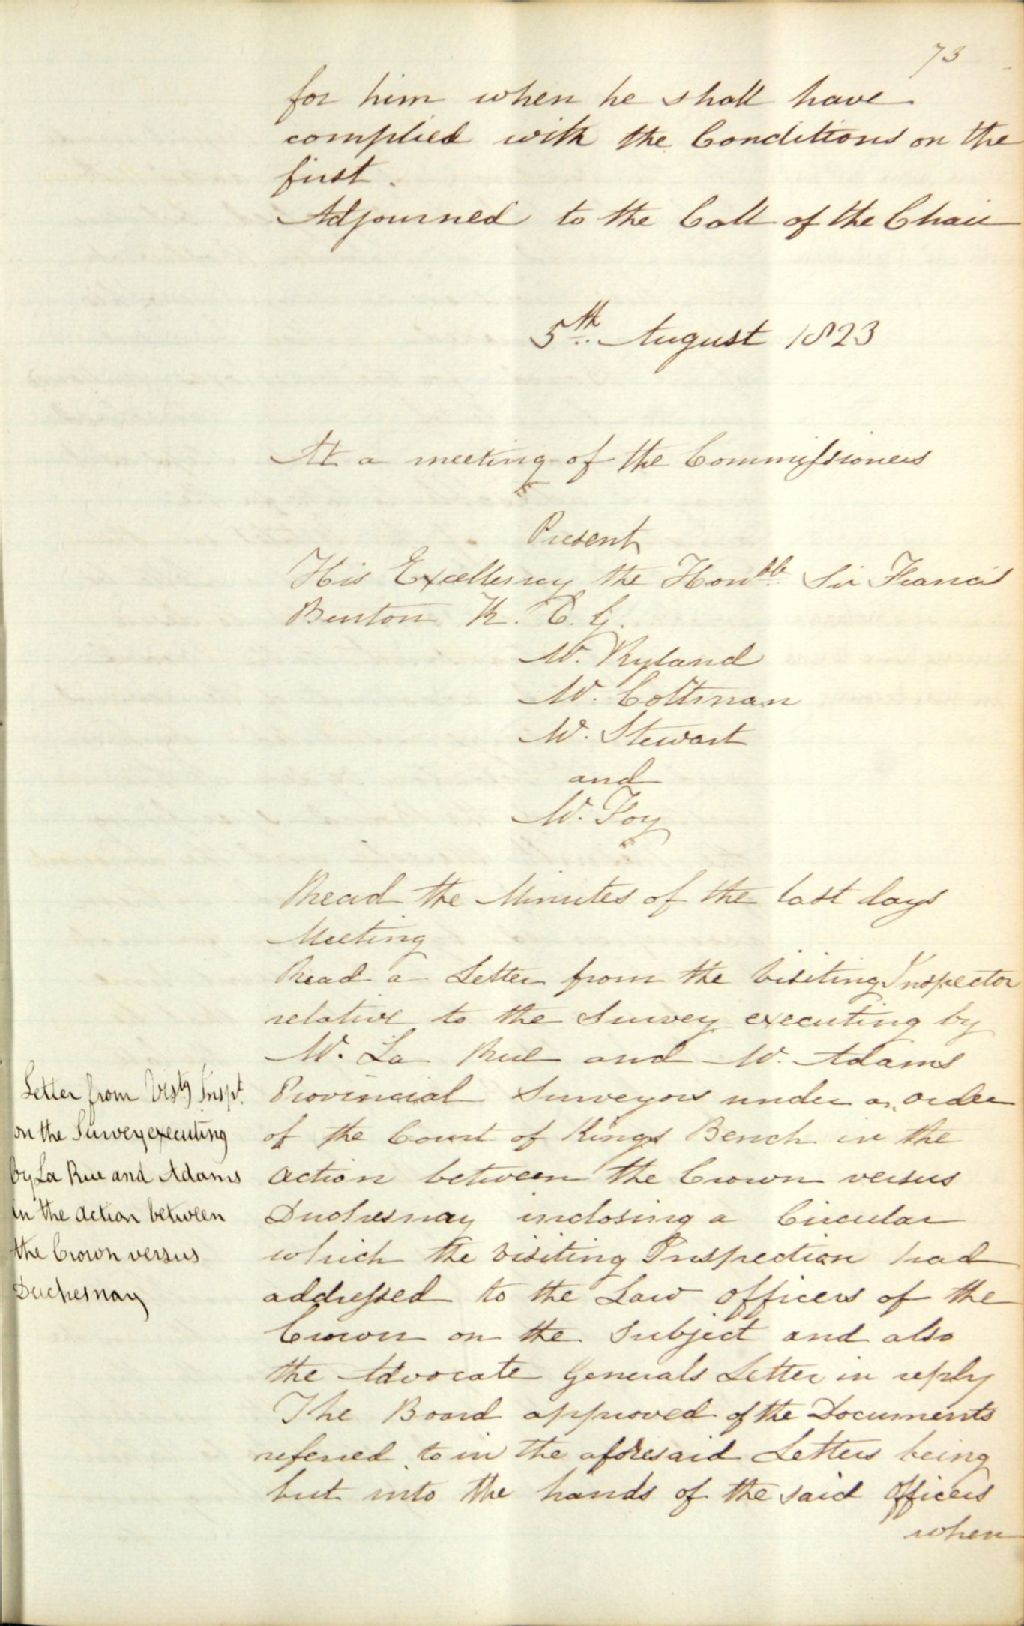 73
for him when he shall have
complied with the Conditions on the
first.
Adjourned to the Call of the Chair
5th August 1823
At a meeting of the Commissioners
Present
His Excellency the Honble Sir Francis
Burton K. C. G.
Mr. Ryland
Mr. Coltman
Mr. Stewart
and
Mr. Foy
Read the Minutes of the last days
Meeting
Read a Letter from the Visiting Inspector
relative to the Survey executing by
Mr. La Rue and Mr. Adams
Provincial Surveyors under an order
of the Court of Kings Bench in the
Action between the Crown versus
Duchesnay inclosing a Circular
which the Visiting Inspection had
addressed to the Law Officers of the
Crown on the Subject and also
the Advocate Generals Letter in reply
The Board approved of the Documents
referred to in the aforesaid Letters being
put into the hands of the said Officers
when
Letter from Vistg Inspt.
on the Survey executing
by La Rue and Adams
in the Action between
the Crown versus
Duchesnay